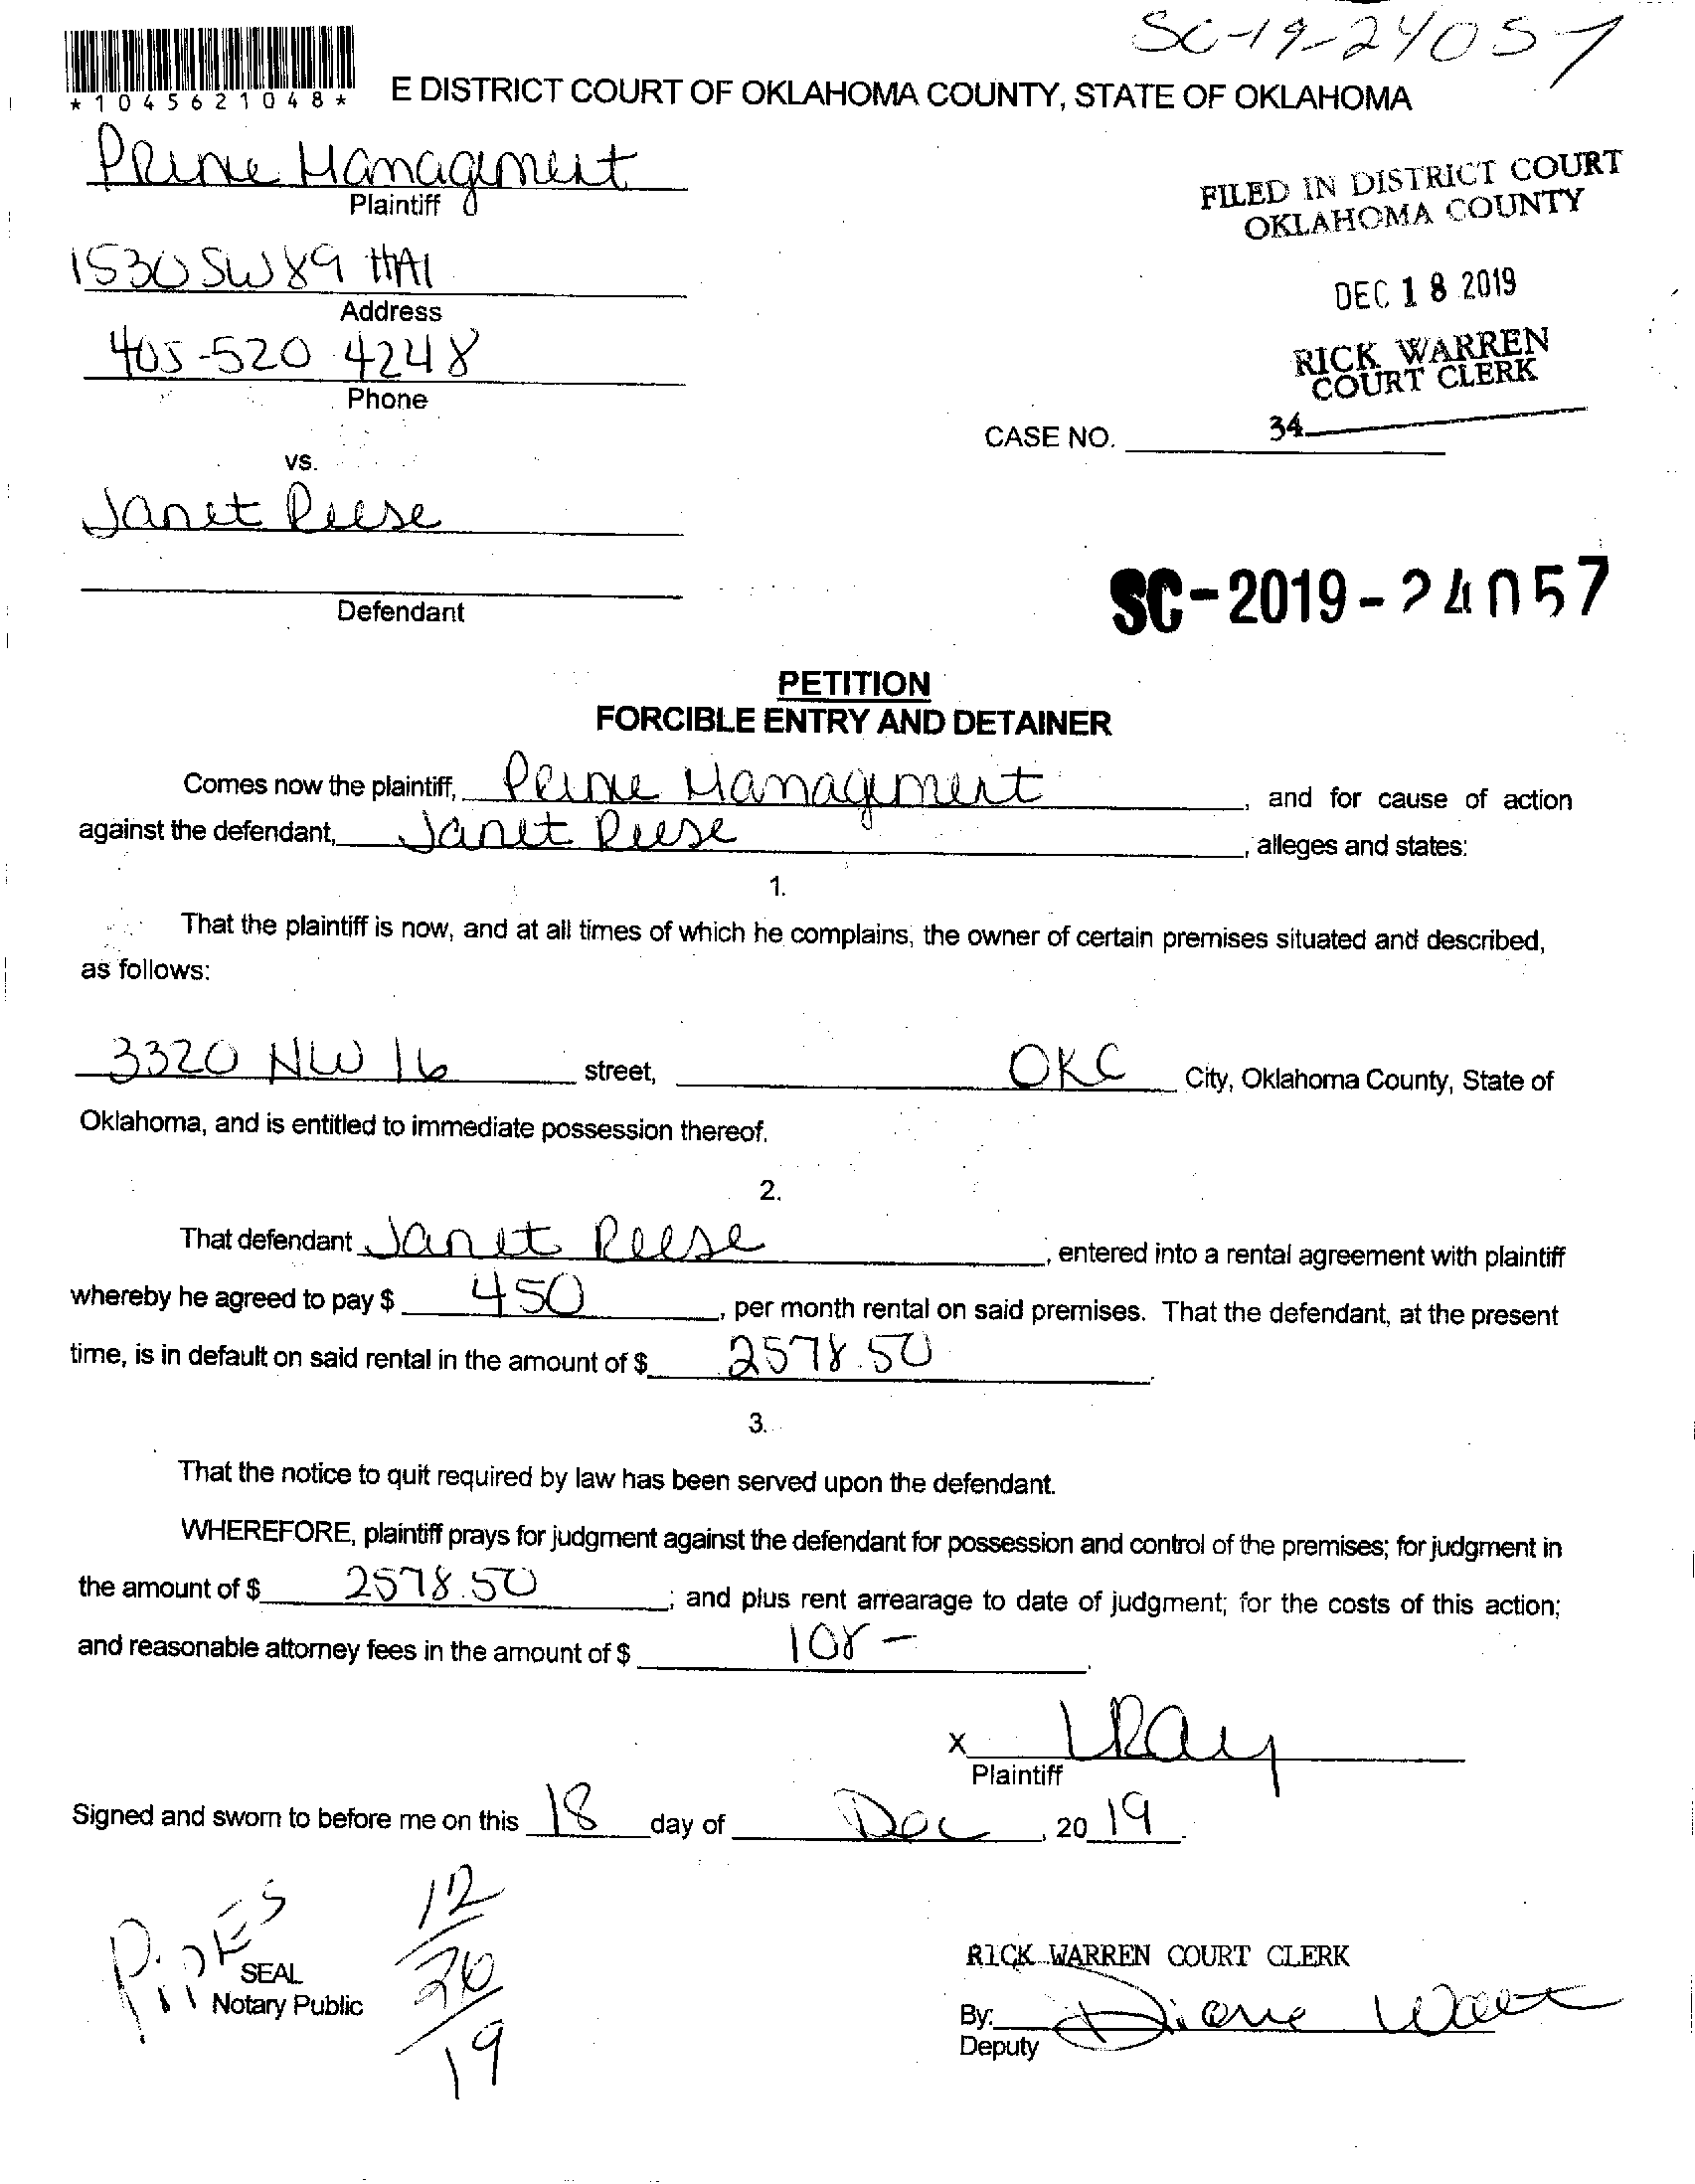 SC-19-24057
*1045621048*
E DISTRICT COURT OF OKLAHOMA COUNTY, STATE OF OKLAHOMA
Prime Management
Plaintiff
FILED IN DISTRICT COURT
OKLAHOMA COUNTY
1530 SW 89 #A1
Address
DEC 18 2019
405-520 4248
Phone
RICK WARREN
COURT CLERK
34
CASE NO.
vs.
Janet Reese
Defendant
SC-2019-24057
PETITION
FORCIBLE ENTRY AND DETAINER
Comes now the plaintiff, Prime Management, and for cause of action
against the defendant, Janet Reese, alleges and states:
1.
That the plaintiff is now, and at all times of which he complains, the owner of certain premises situated and described,
as follows:
3320 NW 16 street, OKC City, Oklahoma County, State of
Oklahoma, and is entitled to immediate possession thereof.
2.
That defendant Janet Reese, entered into a rental agreement with plaintiff
whereby he agreed to pay $ 450, per month rental on said premises. That the defendant, at the present
time, is in default on said rental in the amount of $ 2578.50.
3.
That the notice to quit required by law has been served upon the defendant.
WHEREFORE, plaintiff prays for judgment against the defendant for possession and control of the premises; for judgment in
the amount of $ 2578.50; and plus rent arrearage to date of judgment; for the costs of this action;
and reasonable attorney fees in the amount of $ 108-.
X LRay
Plaintiff
Signed and sworn to before me on this 18 day of Dec, 20 19.
12
26
19
SEAL
Notary Public
RICK WARREN COURT CLERK
By: Diane
Deputy